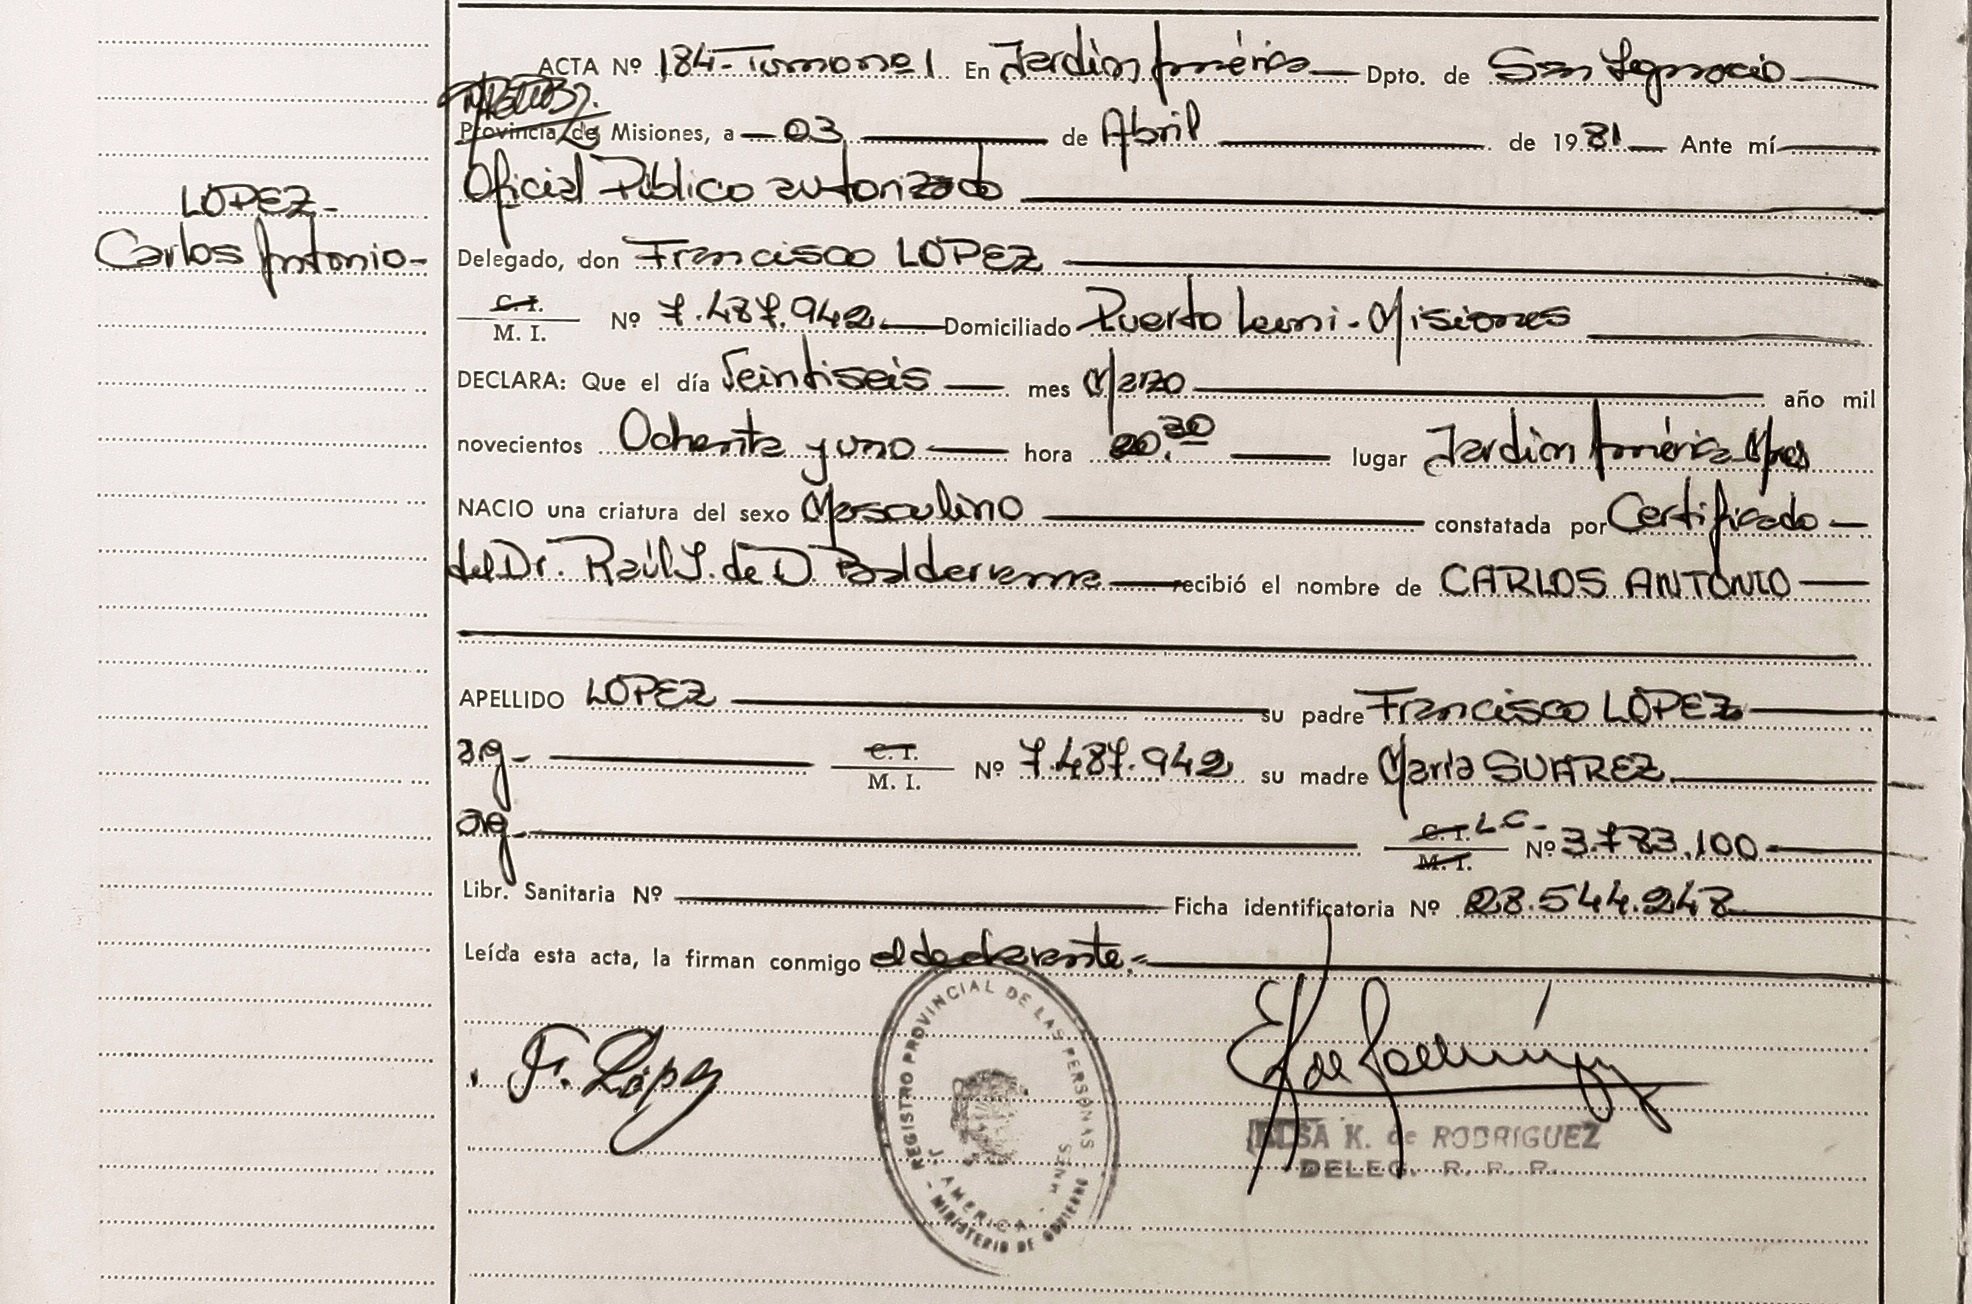 ACTA Nº 184-Tomo nº 1 En Jardín América Dpto. de San Ignacio
Provincia de Misiones, a 03 de Abril de 1981 Ante mí
Oficial Público autorizado
LOPEZ-
Carlos Antonio-
Delegado, don Francisco LOPEZ
C. I.
M. I. Nº 7.487.942. Domiciliado Puerto Leoni-Misiones
DECLARA: Que el día Veintiseis mes Marzo año mil
novecientos Ochenta y uno hora 20,30 lugar Jardín América Mnes
NACIO una criatura del sexo Masculino constatada por Certificado
del Dr. Raúl J. de D. Balderrama recibió el nombre de CARLOS ANTONIO
APELLIDO LOPEZ su padre Francisco LOPEZ
ag- C. I.
M. I. Nº 7.487.942 su madre María SUAREZ
ag- C. I. L.C-
M. I. Nº 3.783.100
Libr. Sanitaria Nº Ficha identificatoria Nº 28.544.248
Leída esta acta, la firman conmigo el declarante.-
F. López
REGISTRO PROVINCIAL DE LAS PERSONAS
J. AMERICA - MNES
- MINISTERIO DE GOBIERNO
ELSA K. de RODRIGUEZ
DELEG. R. P. P.